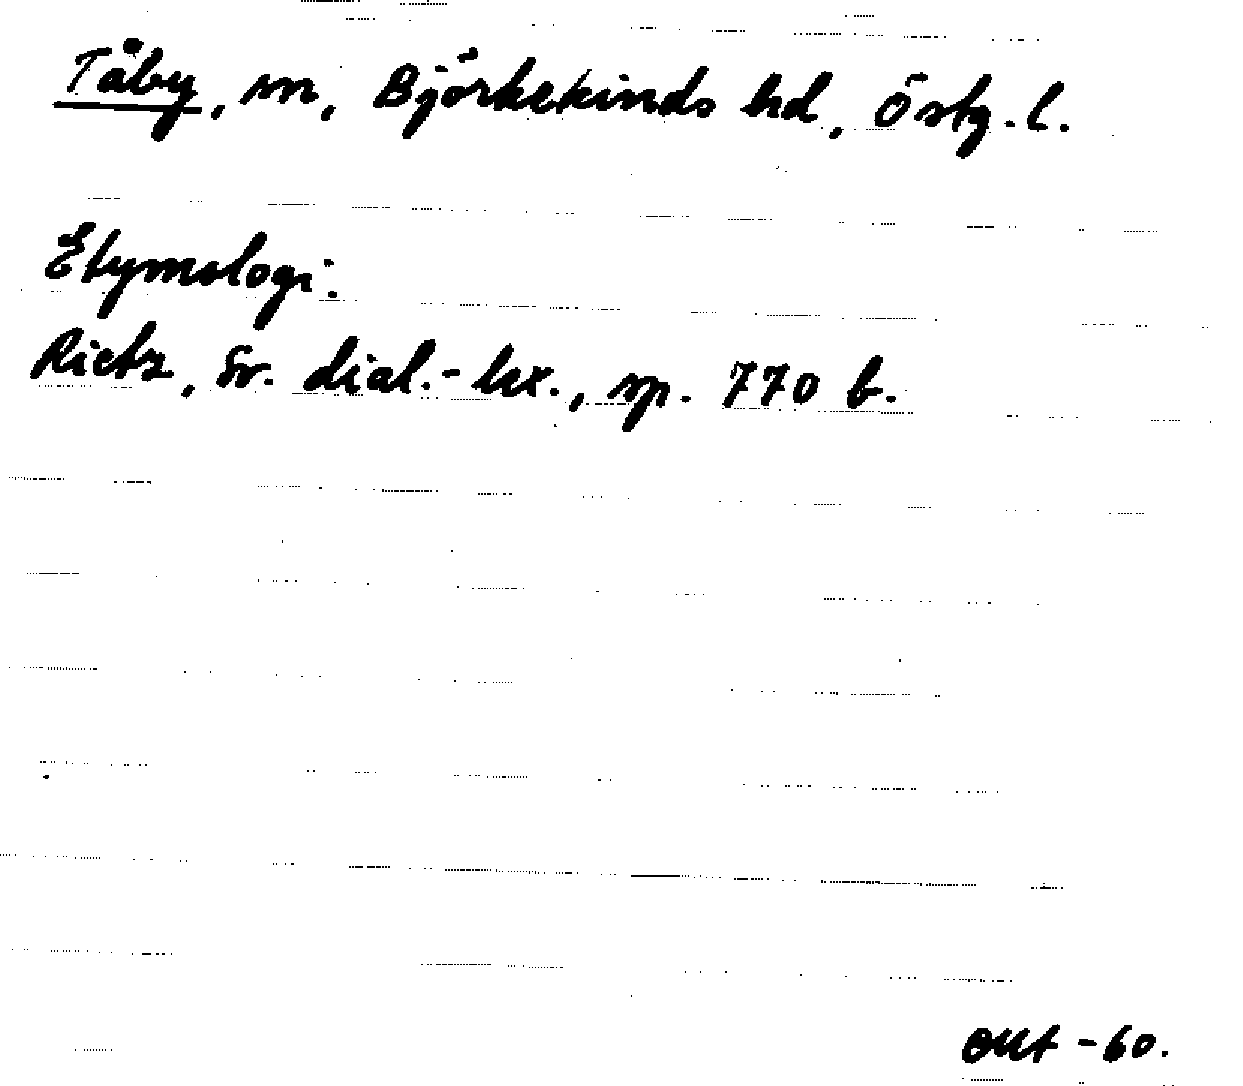 Tåby, sn, Björkekinds hd, Östg. l.
Etymologi:
Rietz, Sv. dial.-lex., sp. 770 b.
okt -60.